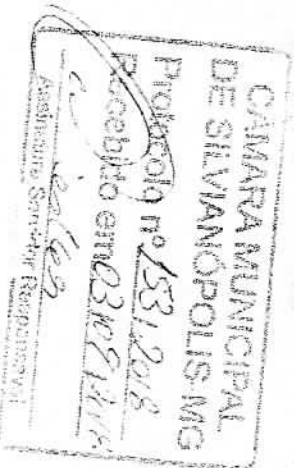 CÂMARA MUNICIPAL
DE SILVIANÓPOLIS MG
Protocolo nº 153/2018
Recebido em 03/09/2018
Assinatura Servidor Responsável